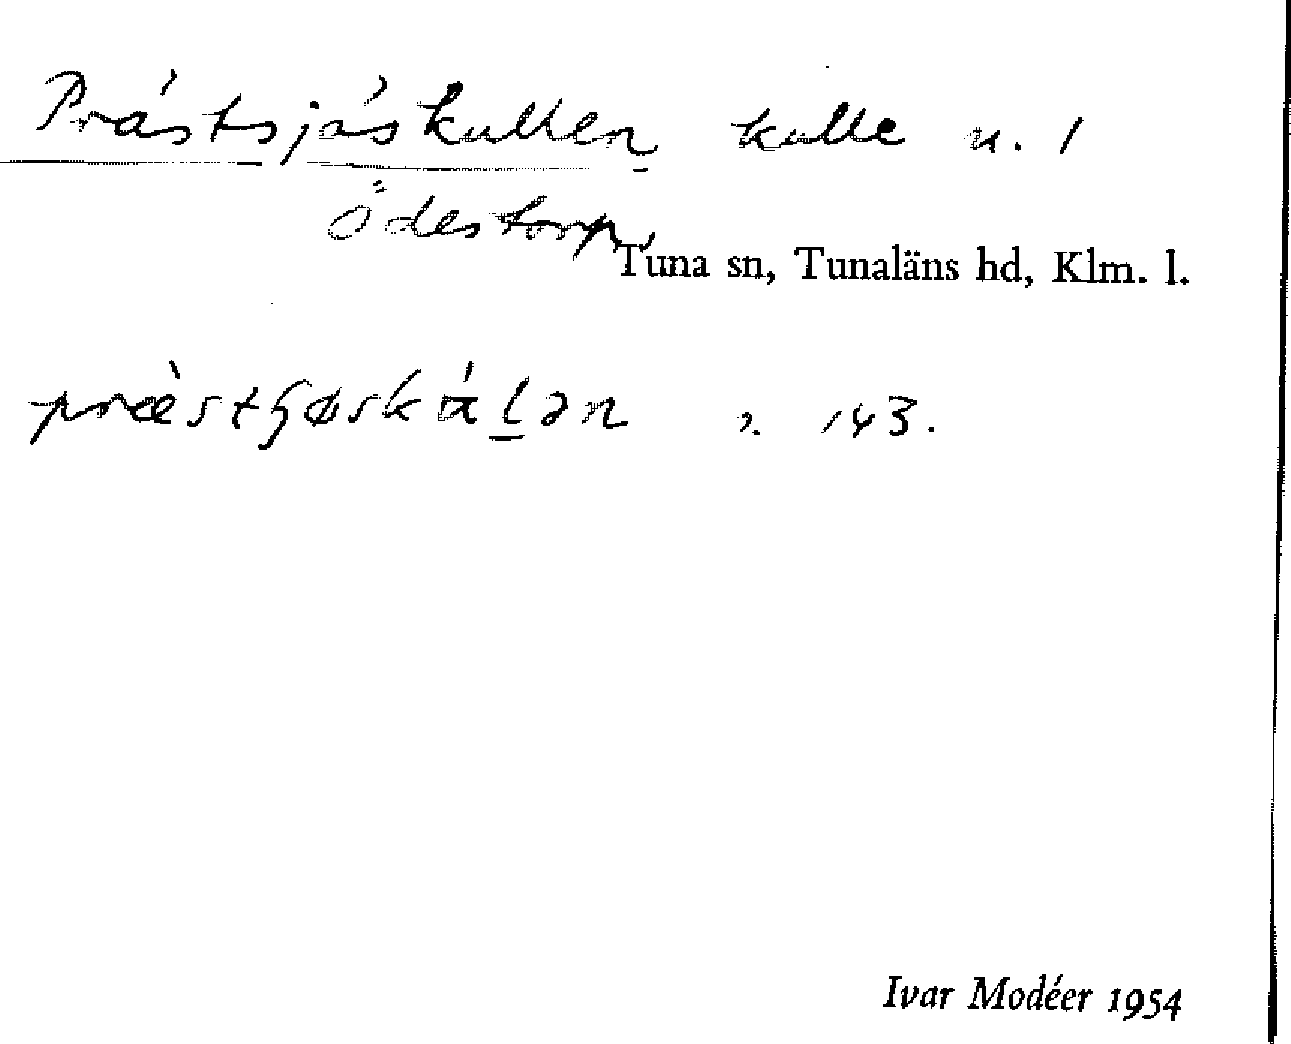 Prästsjöskullen kulle n. 1
Ödestorp,
Tuna sn, Tunaläns hd, Klm. l.
143.
Ivar Modéer 1954